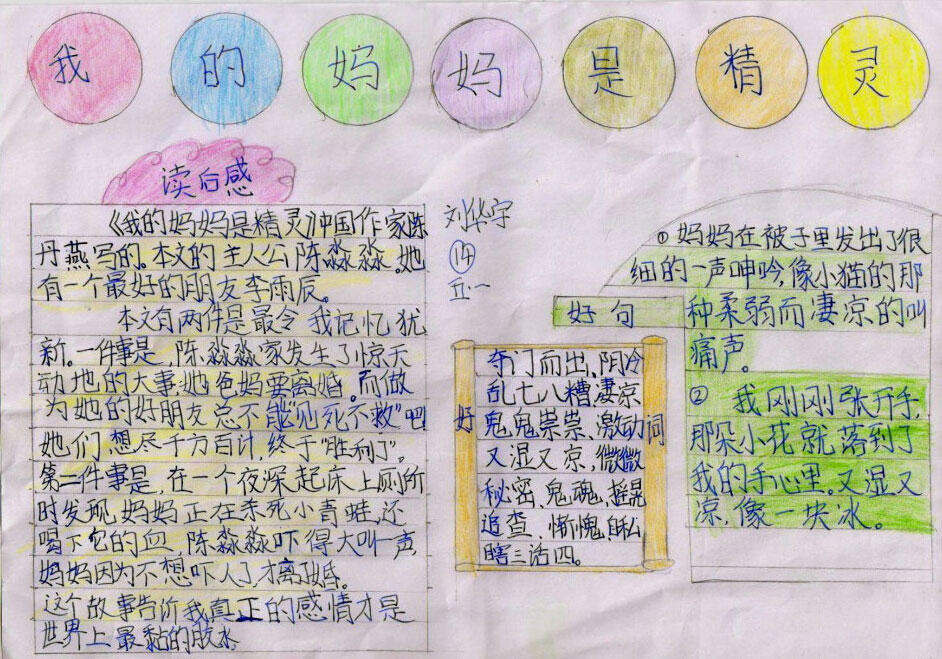 我的妈妈是精灵
读后感
《我的妈妈是精灵》中国作家陈
丹燕写的。本文的主人公陈淼淼。她
有一个最好的朋友李雨辰。
本文有两件是最令我记忆犹
新。一件事是,陈淼淼家发生了惊天
动地的大事:她爸妈要离婚。而做
为她的好朋友总不能“见死不救”吧!
她们想尽千方百计,终于“胜利了”。
第二件事是,在一个夜深起床上厕所
时发现,妈妈正在杀死小青蛙,还
喝下它的血,陈淼淼吓得大叫一声
妈妈因为不想吓人了才离婚。
这个故事告诉我真正的感情才是
世界上最黏的胶水
刘华宇
14
五·一
好词
夺门而出、阴冷
乱七八糟、凄凉
鬼鬼祟祟、激动
又湿又凉、微微
秘密、鬼魂、摇晃
追查、惭愧、自私
瞎三话四。
好句
①妈妈在被子里发出了很
细的一声呻吟,像小猫的那
种柔弱而凄凉的叫
痛声。
② 我刚刚张开手,
那朵小花就落到了
我的手心里。又湿又
凉,像一块冰。